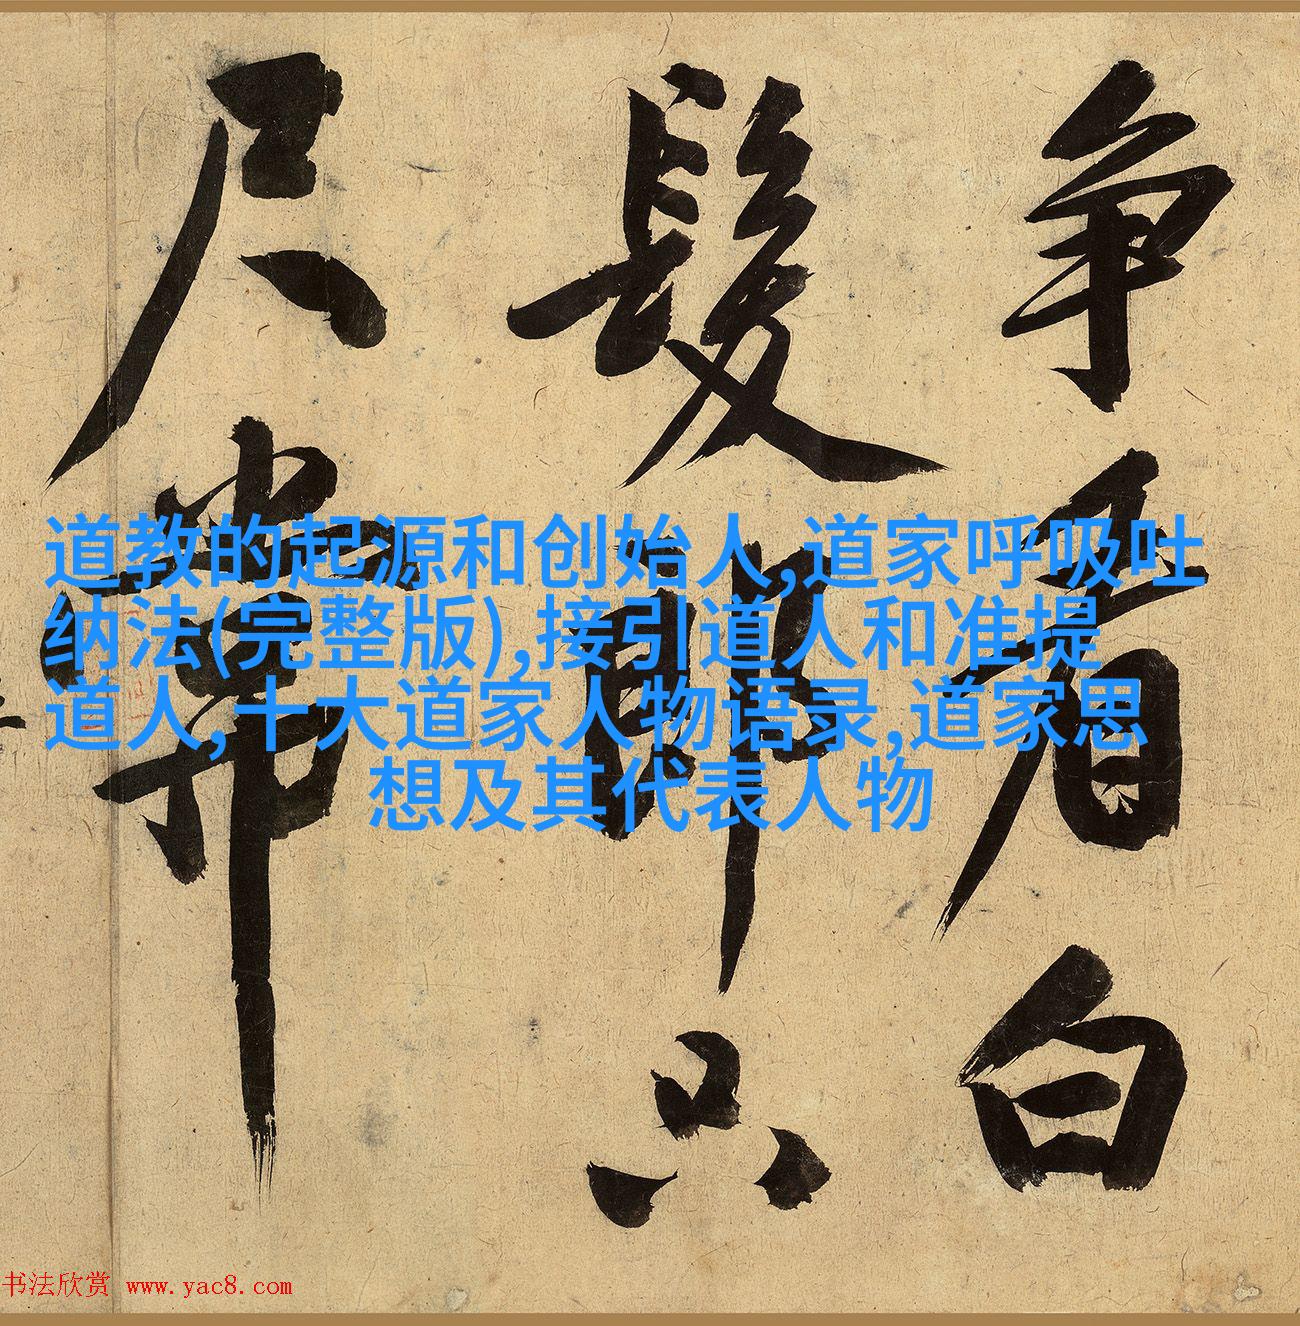 争看白
髮郎只
尺常
道教的起源和创始人,道家呼吸吐
纳法(完整版),接引道人和准提
道人,十大道家人物语录,道家思
想及其代表人物
书法欣赏 www.yac8.com